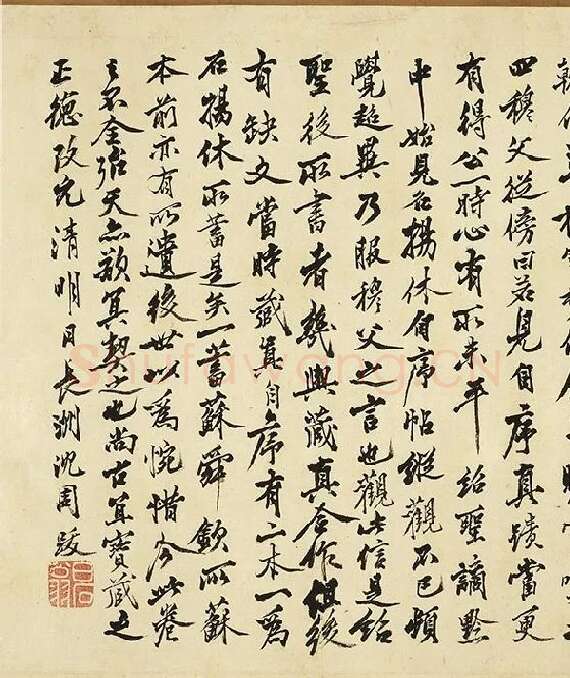 四穆父從傍曰若見自序真蹟當更
有得公一時心有所未平紹聖謫黔
中始見石揚休自序帖縱觀不已頓
覺超異乃服穆父之言也觀此信是紹
聖後所書者幾與藏真合作但後
有缺文當時藏真自序有二本一為
石揚休所蓄是矣一蓄蘇舜欽所蘇
本前亦有所遺後世以為惋惜今此卷
之不全殆天亦欲冥契之也尚古其寶藏之
正德改元清明日長洲沈周跋
白石翁
Shufawang.CN